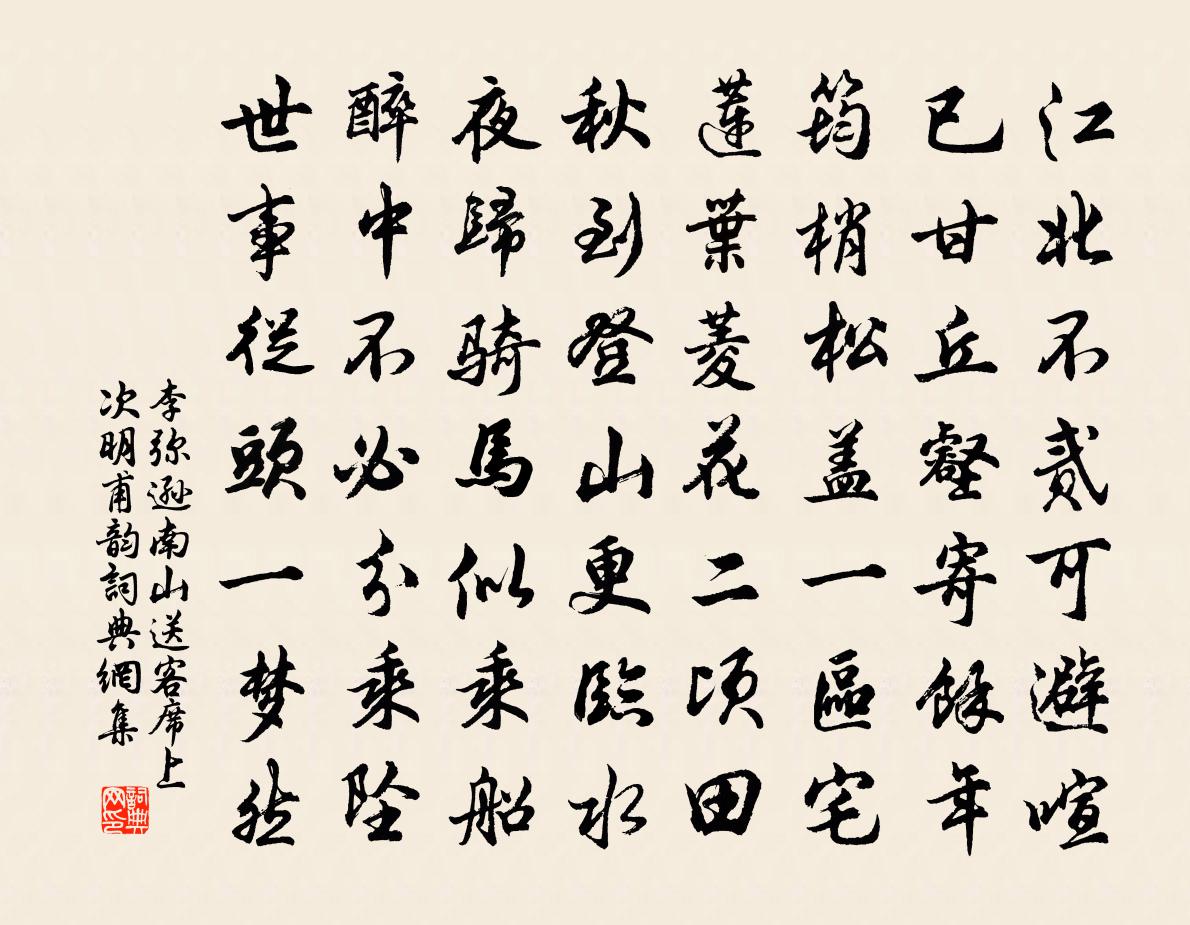 江北不貳可避喧
已甘丘壑寄餘年
筠梢松盖一區宅
蓮葉菱花二頃田
秋到登山更臨水
夜歸騎馬似乘船
醉中不必分乘墜
世事從頭一梦然
李弥遜南山送客席上
次明甫韵詞典網集
詞典
网印